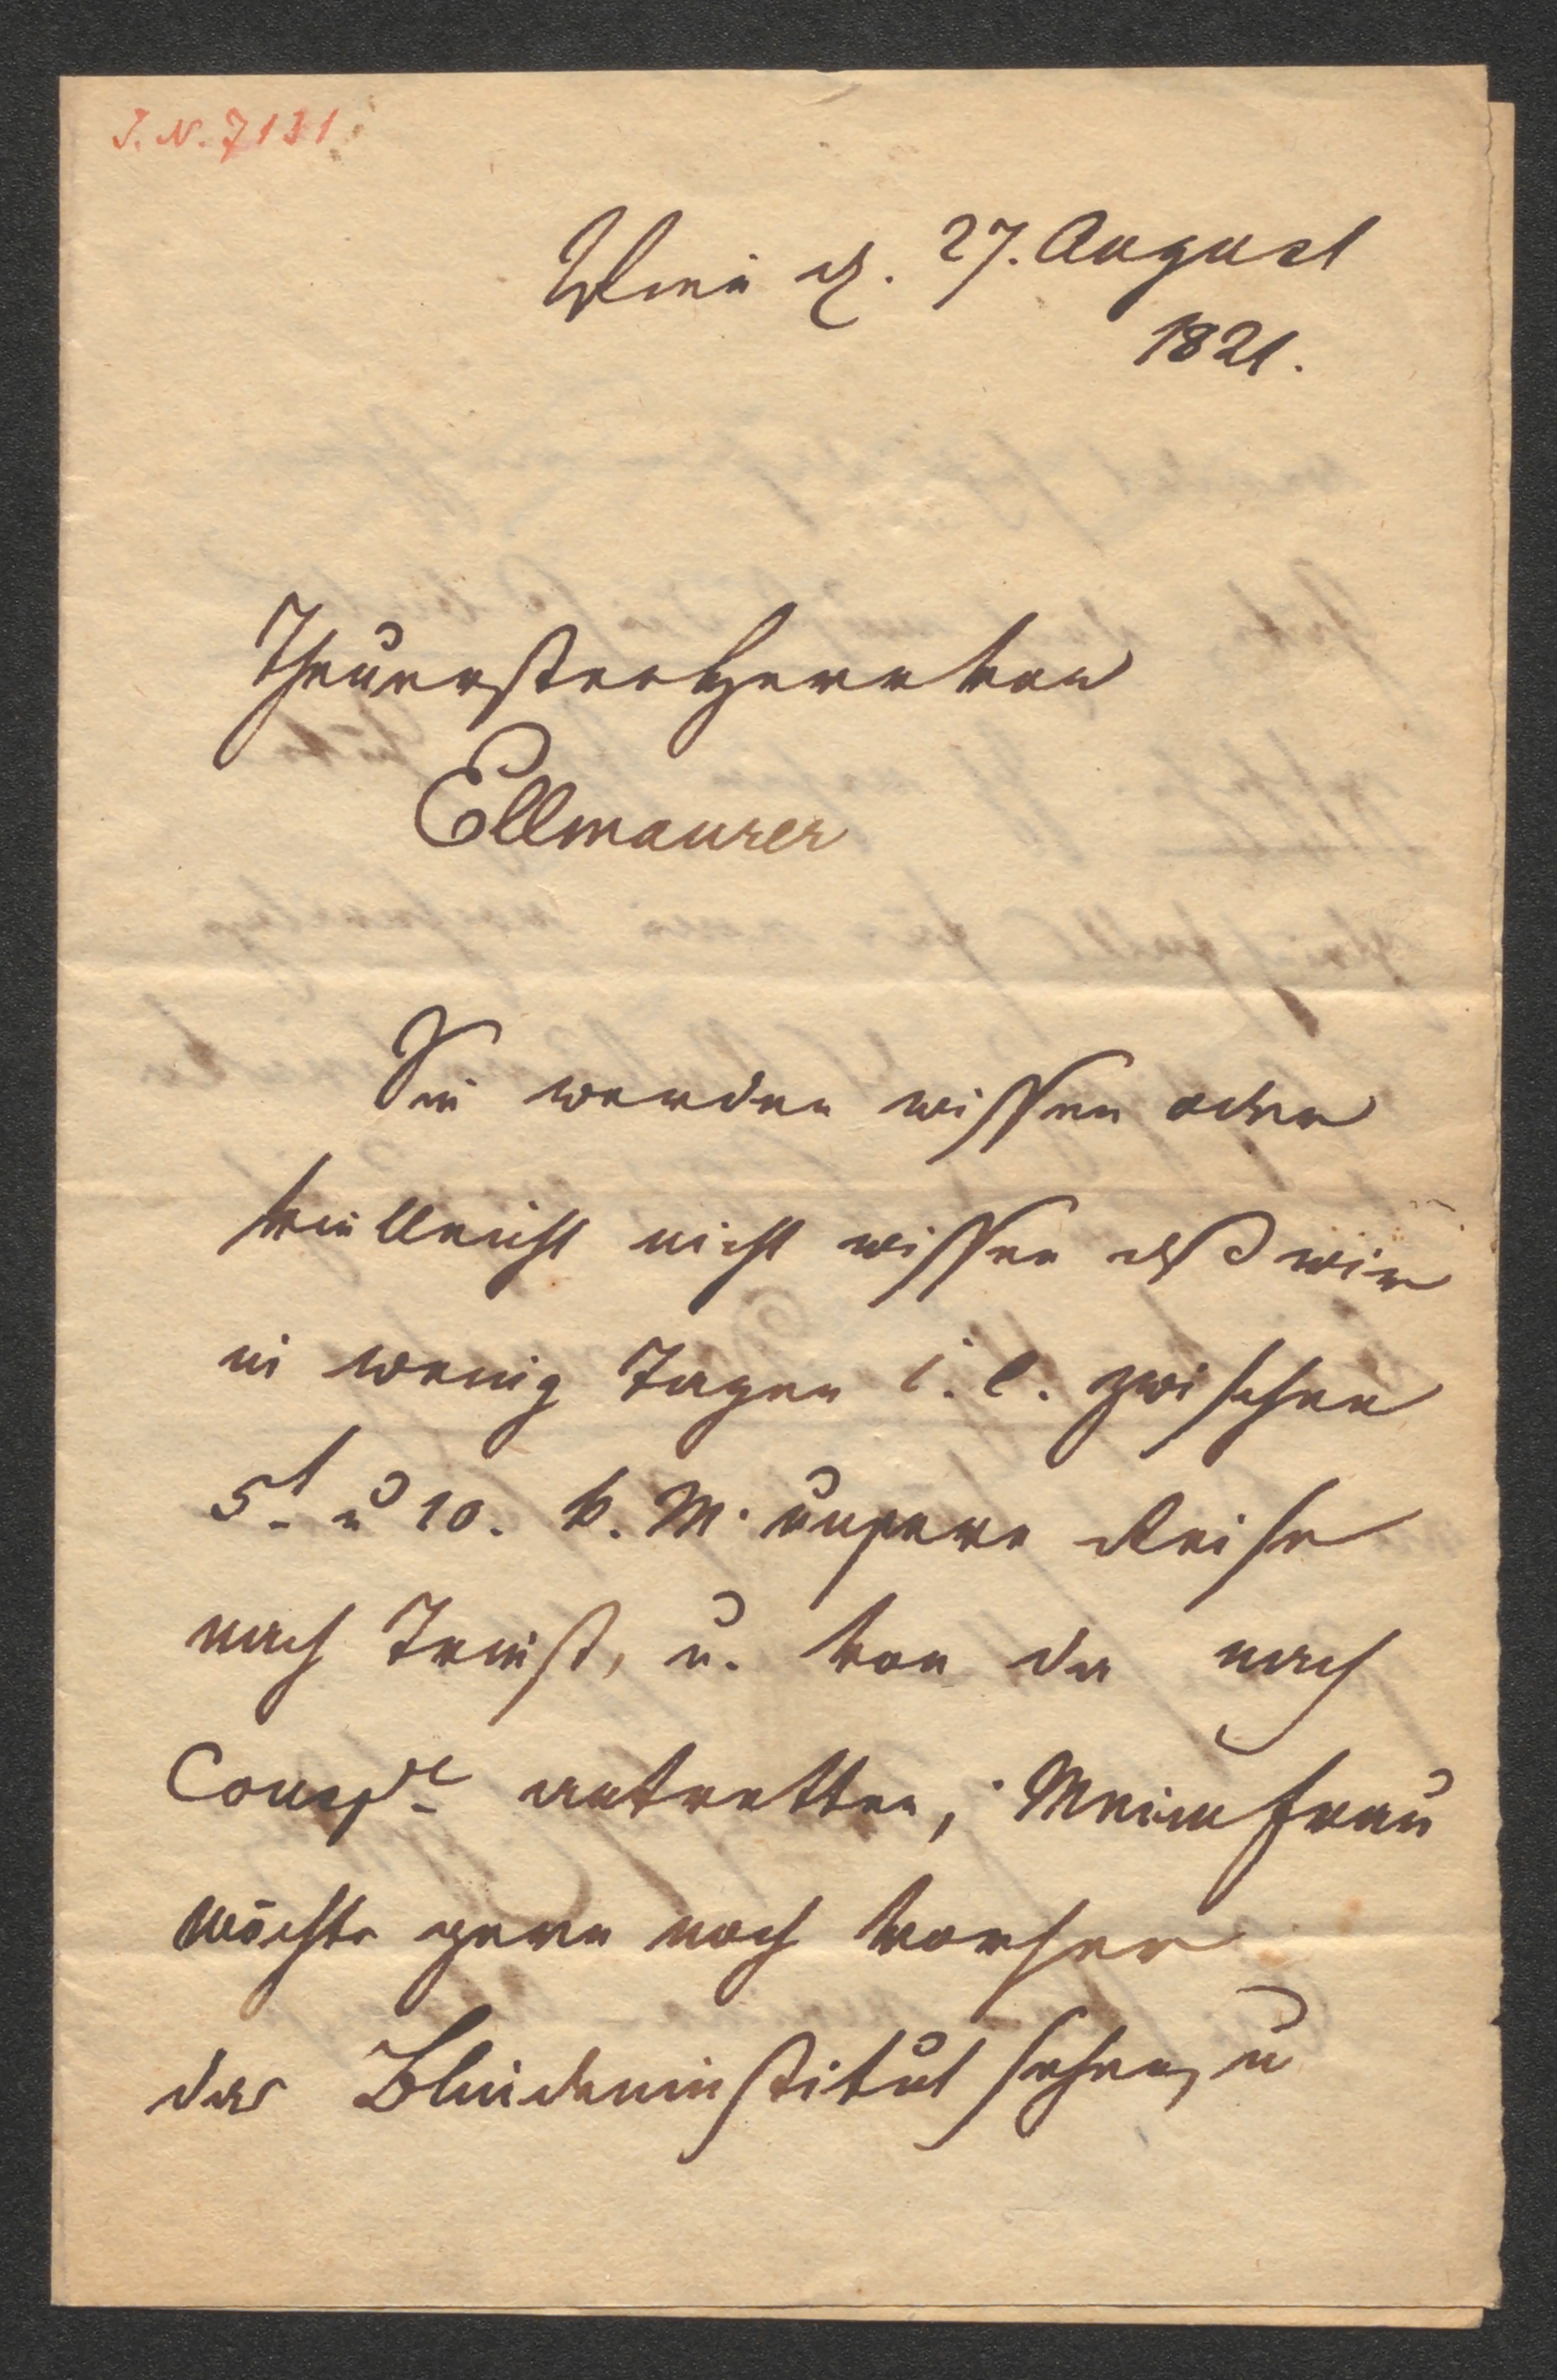 J. N. 7131
Wien d. 27. August
1821.
Theuerster Herr von
Ellmaurer
Sie werden wissen oder
vielleicht nicht wissen daß wir
in wenig Tagen i. e. zwischen
5t u 10. k. M. unsere Reise
nach Triest, u. von da nach
antretten, Meine Frau
möchte gern noch vorher
das Blindeninstitut sehen, u